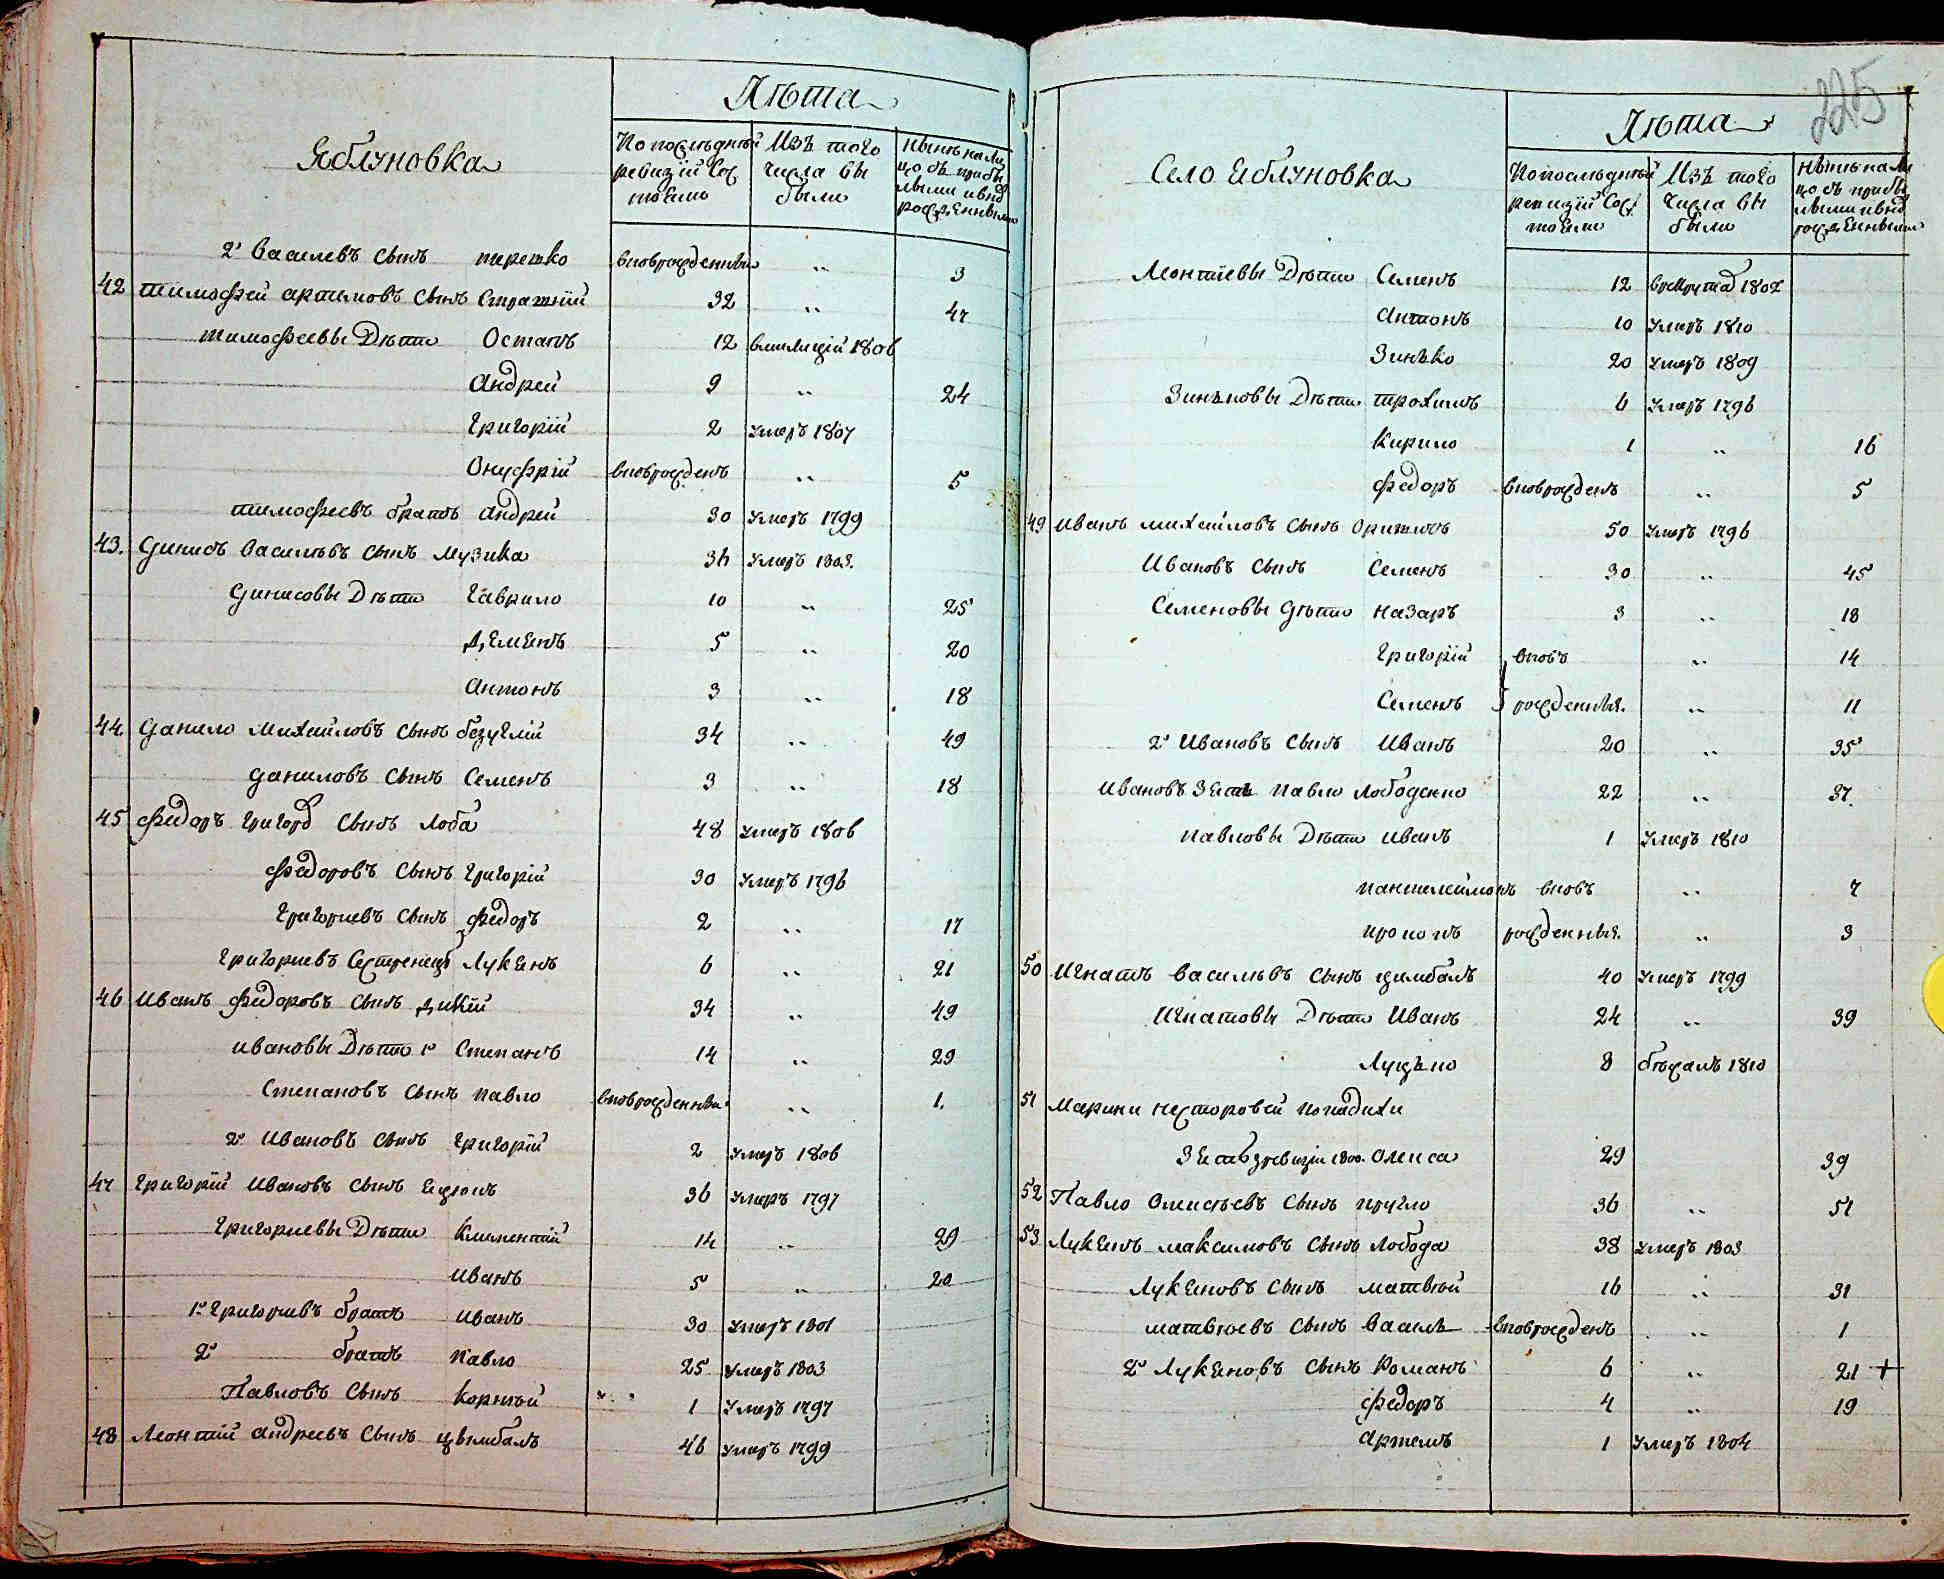 Яблуновка
Лѣта
По послѣдней ревизіи состояло
Изъ того числа выбыли
Нынѣ на лицо съ прибылыми и вновь рожденными
2й Василевъ сынъ терешко вновьрожденный „ 3
42 тимофей артимовъ сынъ Стратній 32 „ 47
тимофеевы Дѣти Остапъ 12 вмилицій 1806
Андрей 9 „ 24
Григорій 2 умеръ 1807
Онуфрій вновьрожденъ „ 5
тимофеевъ братъ андрей 30 умеръ 1799
43. Динисъ Васильевъ сынъ музика 36 умеръ 1803.
Динисовы Дѣти Гаврило 10 „ 25
Демянъ 5 „ 20
Антонъ 3 „ 18
44. Данило Михайловъ сынъ безуглій 34 „ 49
Даниловъ сынъ Семенъ 3 „ 18
45 Федоръ Григор сынъ Лоба 48 умеръ 1806
Федоровъ сынъ Григорій 30 умеръ 1796
Григориевъ сынъ Федоръ 2 „ 17
Григориевъ Сестренецъ Лукянъ 6 „ 21
46 Иванъ Федоровъ сынъ дикій 34 „ 49
ивановы Дѣти 1й Степанъ 14 „ 29
Степановъ сынъ павло вновьрожденный „ 1.
2й Ивановъ сынъ Григорій 2 умеръ 1806
47 Григорій Ивановъ сынъ 36 умеръ 1797
Григориевы Дѣти Климентій 14 „ 29
Иванъ 5 „ 20
1й Григориевъ братъ иванъ 30 умеръ 1801
2й братъ павло 25 умеръ 1803
Павловъ сынъ корнѣй „ 1 умеръ 1797
48 Леонтій андреевъ сынъ цвимбалъ 46 умеръ 1799
225
Село Яблуновка
Лѣта
По послѣдней ревизіи состояло
Изъ того числа выбыли
Нынѣ на лицо съ прибылыми и вновь рожденными
Леонтіевы Дѣти Семенъ 12 врекрута 1802
Антонъ 10 умеръ 1810
Зинько 20 умеръ 1809
Зинковы Дѣти трохимъ 6 умеръ 1796
Кирило 1 „ 16
Федоръ вновьрожденъ „ 5
49 Иванъ михайловъ сынъ 50 умеръ 1796
Ивановъ сынъ Семенъ 30 „ 45
Семеновы Дѣти назаръ 3 „ 18
Григорій вновь „ 14
Семенъ рожденныя. „ 11
2й Ивановъ сынъ Иванъ 20 „ 35
Ивановъ Зять павло лободенко 22 „ 37.
павловы Дѣти иванъ 1 умеръ 1810
пантелеймонъ вновь „ 7
прокопъ рожденныя. „ 3
50 Игнатъ васильвъ сынъ цимбалъ 40 умеръ 1799
Игнатовы Дѣти Иванъ 24 „ 39
Луцько 8 бѣжалъ 1810
51 Марини несторовей попадихи
Зять зревизіи 1800. олекса 29 39
52 Павло сынъ кругло 36 „ 51
53 Лукянъ максимовъ сынъ лобода 38 умеръ 1803
Лукяновъ сынъ матвѣй 16 „ 31
матвѣевъ сынъ василь вновьрожденъ „ 1
2й Лукяновъ сынъ Романъ 6 „ 21 +
Федоръ 4 „ 19
Артемъ 1 умеръ 1804